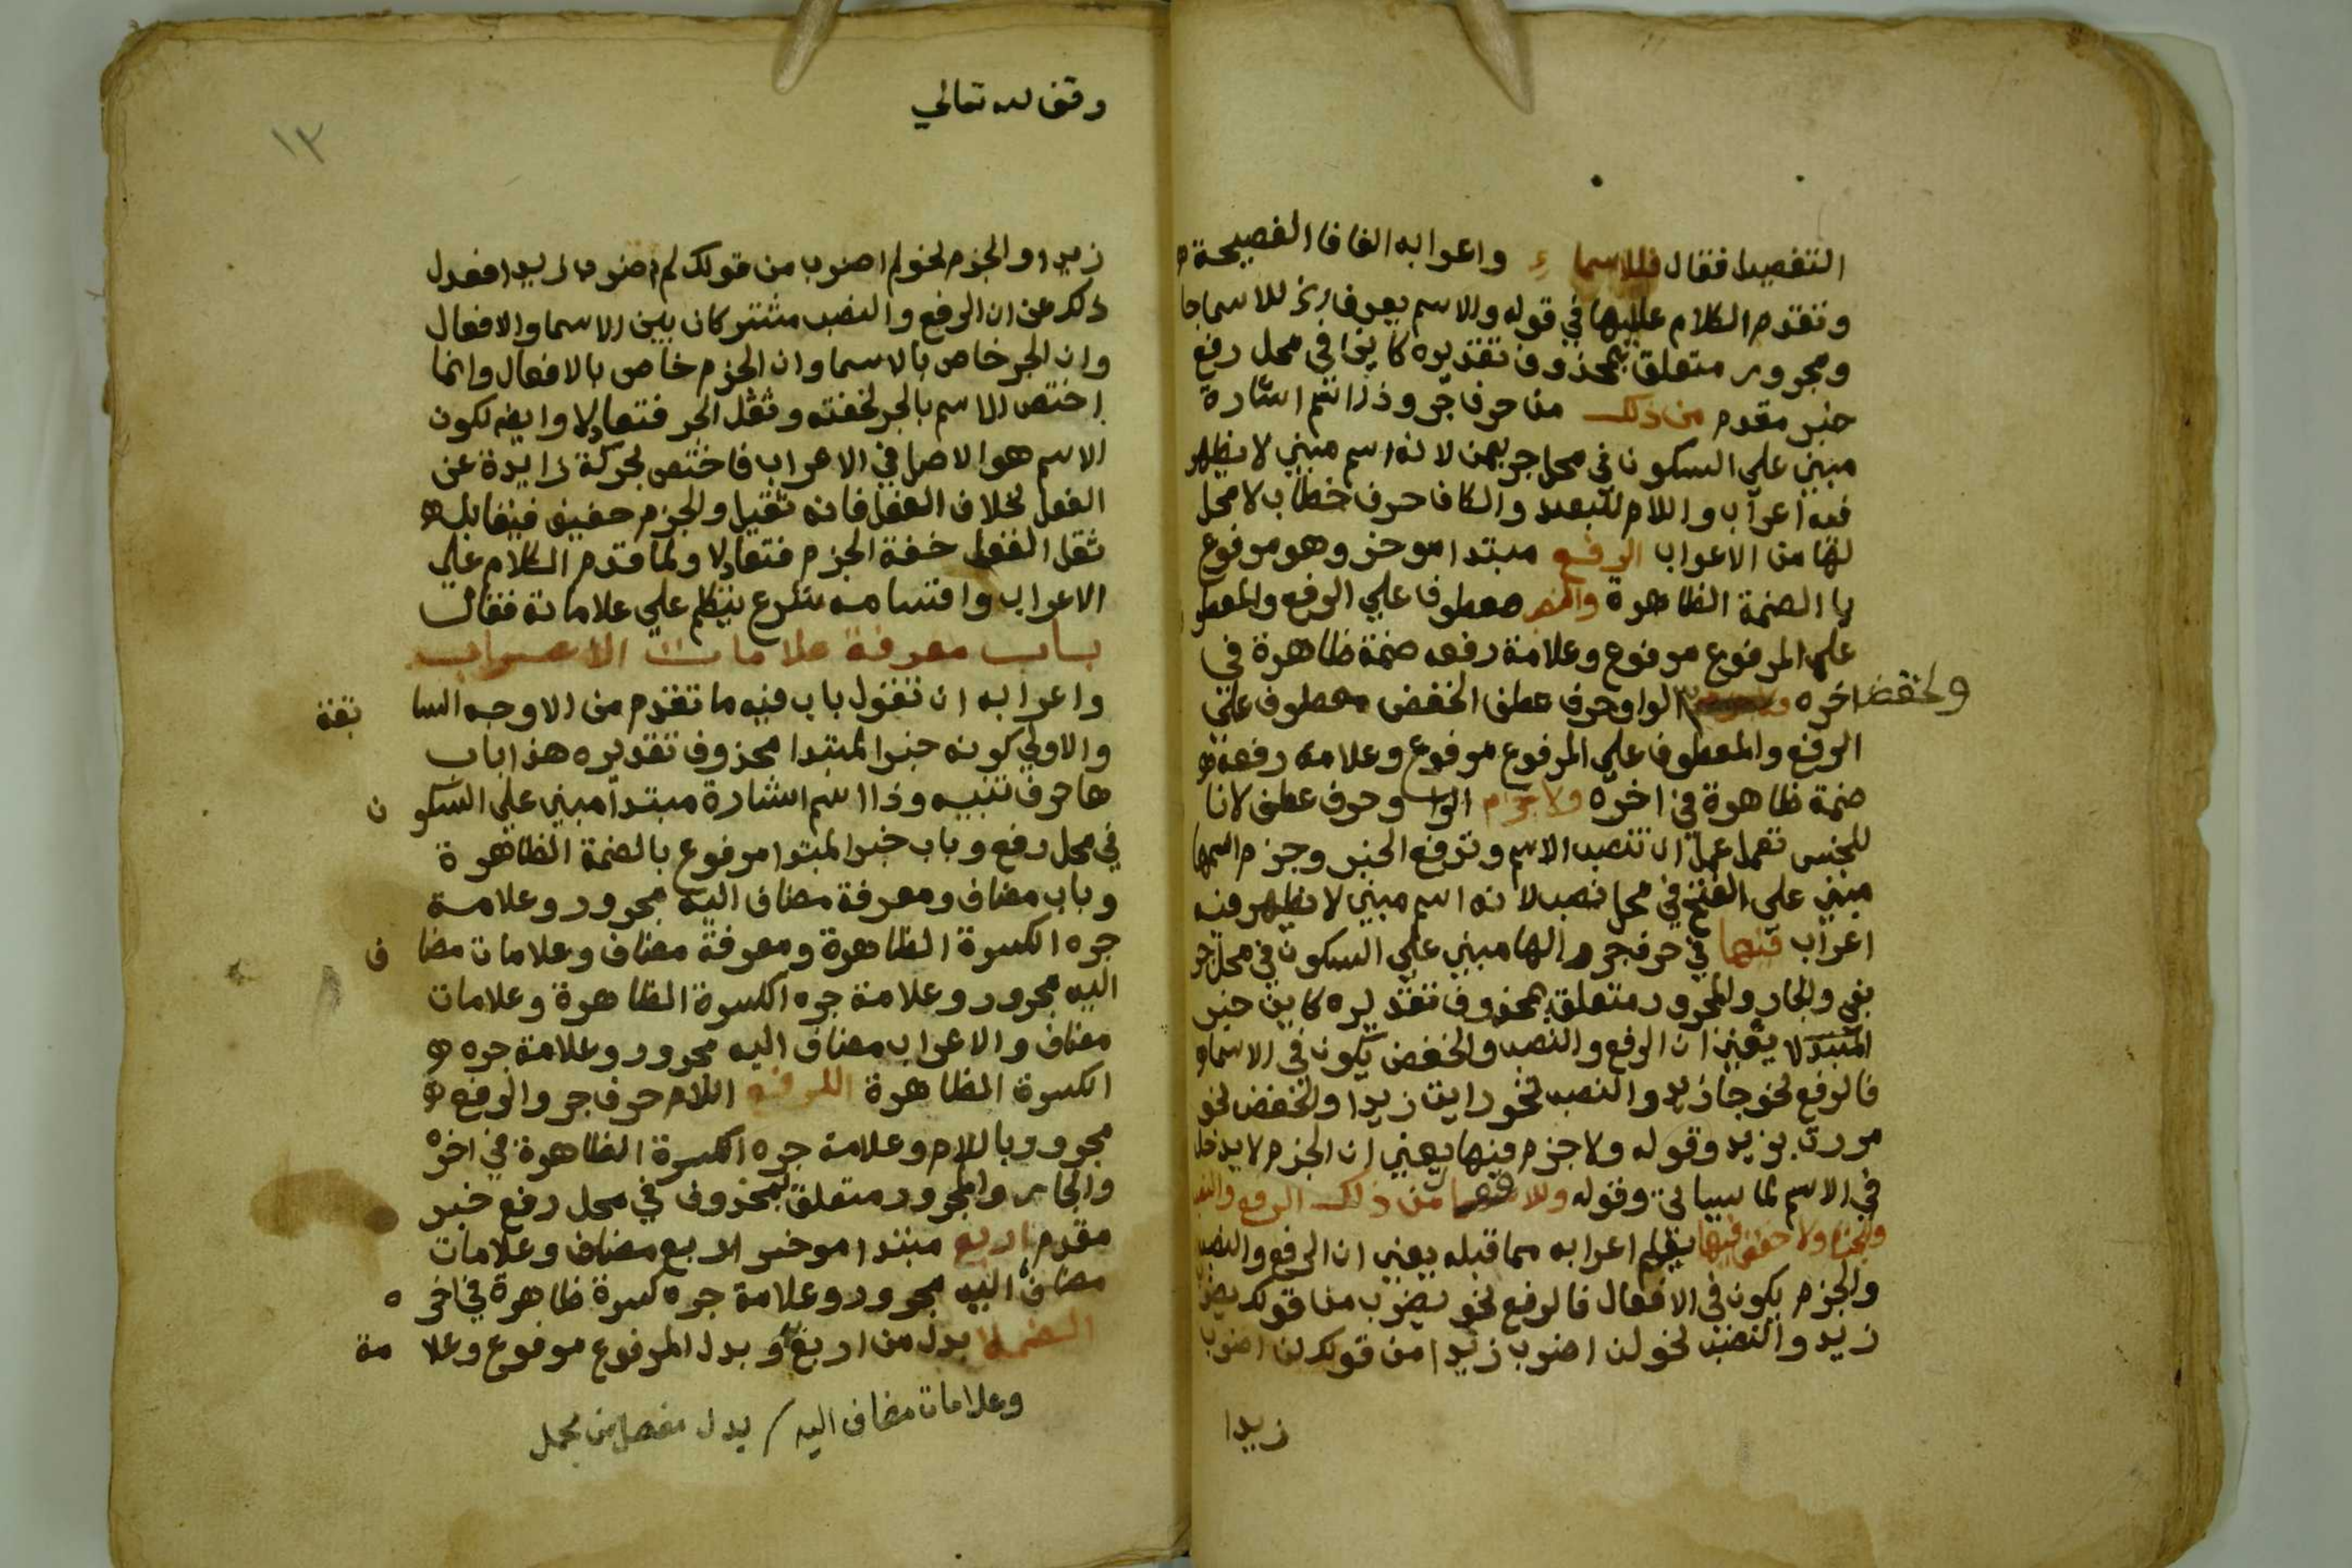 التفصيل فقال فللاسماء واعرابه الفا فا الفصيحة
وتقدم الكلام عليها في قوله والاسم يعرف للاسما جا
ومجرور متعلق بمحذوف تقديره كاين في محل رفع
خبر مقدم من ذلك من حرف جر وذا اسم اشارة
مبني علي السكون في محل جر بمن لانه اسم مبني لا يظهر
فيه اعراب واللام للبعد والكاف حرف خطاب لا محل
لها من الاعراب الرفع مبتدا موخر وهو مرفوع
با الضمة الظاهرة والنصب معطوف علي الرفع والمعطو
علي المرفوع مرفوع وعلامة رفعه ضمة ظاهرة في
اخره والخفض الواو حرف عطف الخفض معطوف علي
الرفع والمعطوف علي المرفوع مرفوع وعلامة رفعه
ضمة ظاهرة في اخره ولا جزم الواو حرف عطف لا نا
للجنس تعمل عمل ان تنصب الاسم وترفع الخبر وجزم اسمها
مبني علي الفتح في محل نصب لانه اسم مبني لا يظهر فيه
اعراب فيها في حرف جر والها مبني علي السكون في محل جر
بفي والجار والمجرور متعلق بمحذوف تقديره كاين خبر
المبتدا يعني ان الرفع والنصب والخفض يكون في الاسما و
فالرفع نحو جا زيد والنصب نحو رايت زيدا والخفض نحو
مررت بزيد وقوله ولا جزم فيها يعني ان الجزم لا يدخل
في الاسم لما سياتي وقوله وللافعال من ذلك الرفع والنصب
والجزم ولا خفض فيها يعلم اعرابه مما قبله يعني ان الرفع والنصب
والجزم يكون في الافعال فالرفع نحو يضرب من قولك يضرب
زيد والنصب نحو لن اضرب زيدا من قولك لن اضرب
زيدا
وقف لله تعالي
١٣
زيدا والجزم نحو لم اضرب من قولك لم اضرب زيدا فعدل
ذلك عن ان الرفع والنصب مشتركان بين الاسما والافعال
وان الجر خاص بالاسما وان الجزم خاص بالافعال وانما
اختص الاسم بالجر لخفته وثقل الجر فتعادلا وايضا لكون
الاسم هو الاصل في الاعراب فاختص بحركة زايدة عن
الفعل بخلاف الفعل فانه ثقيل والجزم خفيف فيقابل
ثقل الفعل خفة الجزم فتعادلا ولما قدم الكلام علي
الاعراب واقسامه شرع يتكلم علي علاماته فقال
باب معرفة علامات الاعراب
واعرابه ان تقول باب فيه ما تقدم من الاوجه السا بقة
والاولي كونه خبرا لمبتدا محذوف تقديره هذا باب
ها حرف تنبيه وذا اسم اشارة مبتدا مبني علي السكو ن
في محل رفع وباب خبر المبتدا مرفوع بالضمة الظاهرة
وباب مضاف ومعرفة مضاف اليه مجرور وعلامة
جره الكسرة الظاهرة ومعرفة مضاف وعلامات مضا ف
اليه مجرور وعلامة جره الكسرة الظاهرة وعلامات
مضاف والاعراب مضاف اليه مجرور وعلامة جره
الكسرة الظاهرة للرفع اللام حرف جر والرفع
مجرور باللام وعلامة جره الكسرة الظاهرة في اخره
والجار والمجرور متعلق بمحذوف في محل رفع خبر
مقدم اربع مبتدا موخر اربع مضاف وعلامات
مضاف اليه مجرور وعلامة جره كسرة ظاهرة في اخر ه
الضمة بدل من اربع وبدل المرفوع مرفوع وعلا مة
وعلامات مضاف اليه / بدل مفصل من مجمل